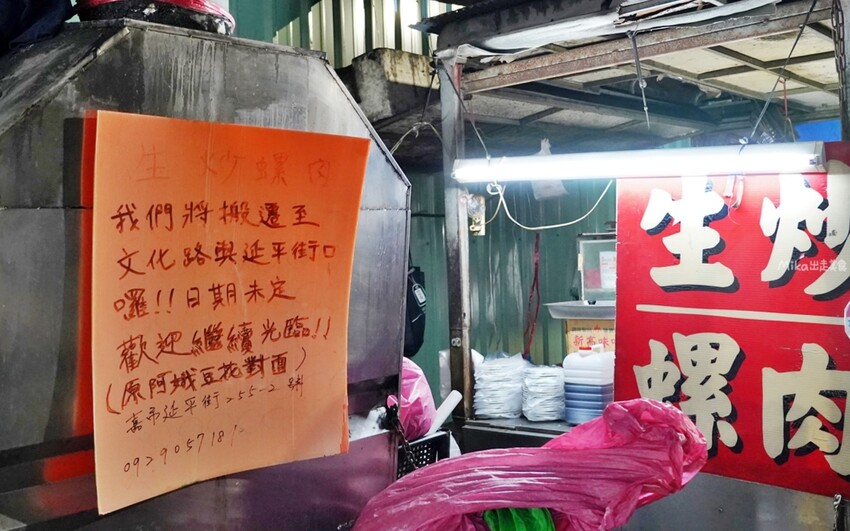 生炒螺肉
我們將搬遷至
文化路與延平街口
囉!!日期未定
歡迎繼續光臨!!
(原阿娥豆花對面)
嘉市延平街255-2號
生炒
螺肉
Mika出走美食